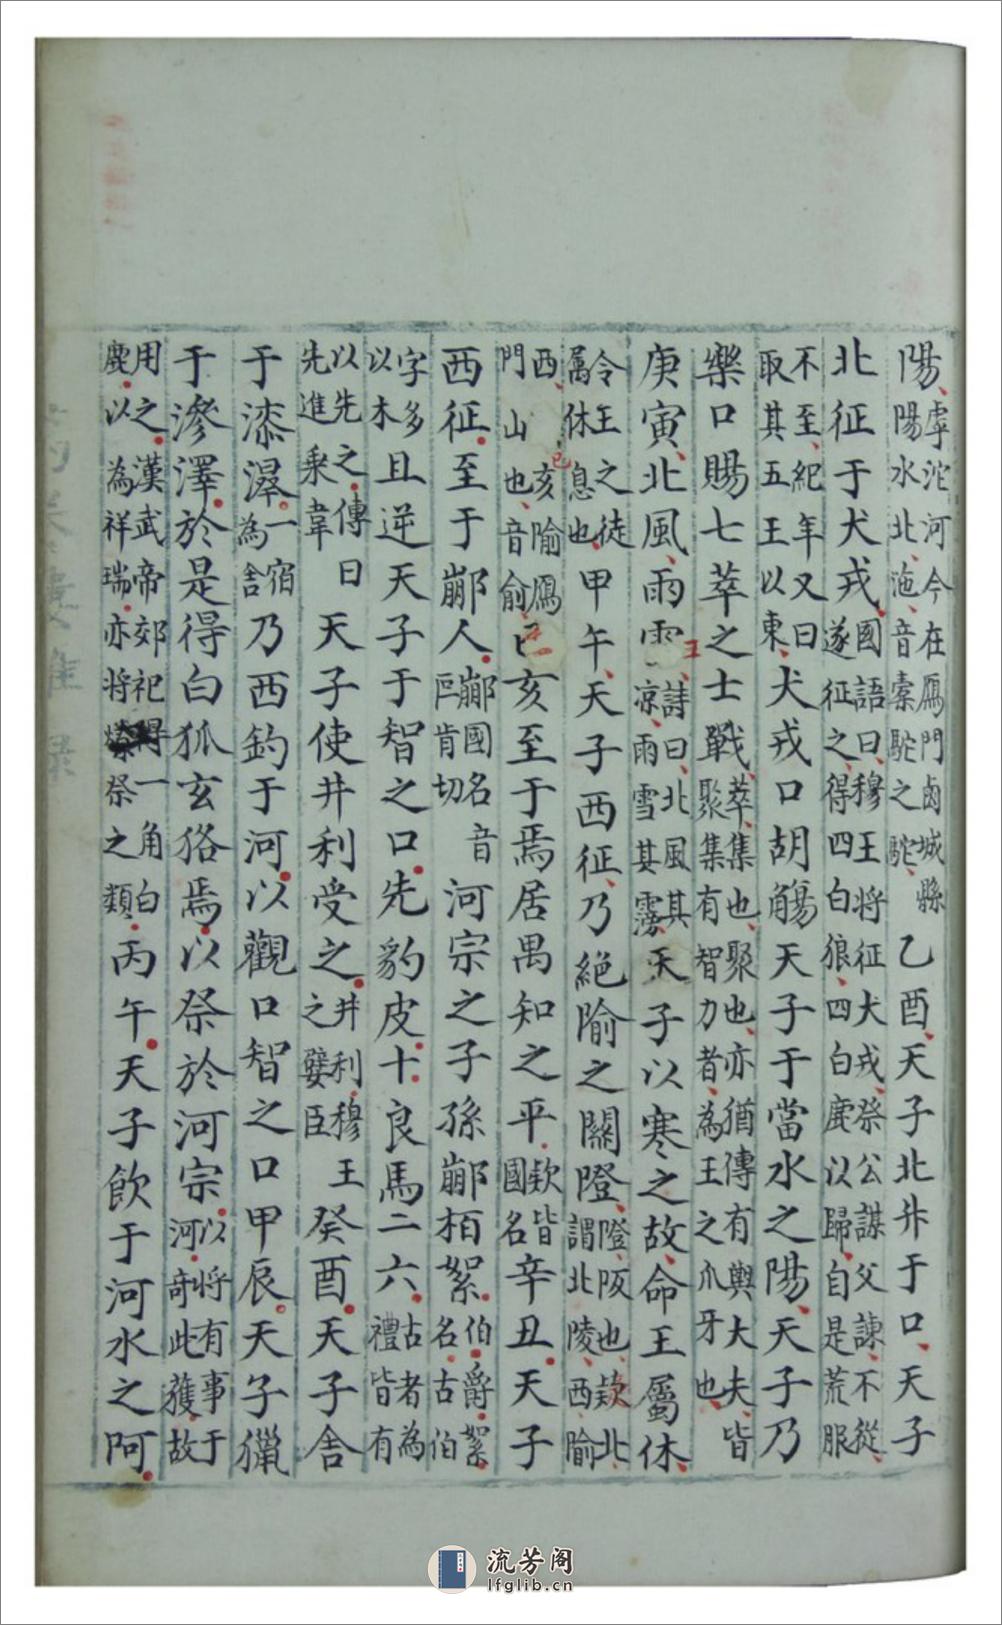 陽虖沱河今在鴈門鹵城縣陽水北沲音橐駝之駝乙酉天子北升于口天子
北征于犬戎國語曰穆王將征犬戎祭公謀父諫不從遂征之得四白狼四白鹿以歸自是荒服
不至紀年又曰取其五王以東犬戎口胡觴天子于當水之陽天子乃
樂口賜七萃之士戰萃集也聚也亦猶傳有輿大夫皆聚集有智力者為王之爪牙也
庚寅北風雨雪詩曰北風其涼雨雪其雱天子以寒之故命王屬休
令王之徒屬休息也甲午天子西征乃絕隃之關隥隥阪也欵北謂北陵西隃
西隃鴈門山也音俞己亥至于焉居禺知之平欵皆國名辛丑天子
西征至于䣙人䣙國名音巨肯切河宗之子孫䣙栢絮伯爵絮名古伯
字多以木且逆天子于智之口先豹皮十良馬二六古者為禮皆有
以先之傳曰先進乘韋天子使井利受之井利穆王之嬖臣癸酉天子舍
于漆澤一宿為舍乃西釣于河以觀口智之口甲辰天子獵
于滲澤於是得白狐玄狢焉以祭於河宗以將有事于河奇此獲故
用之漢武帝郊祀得一角白鹿以為祥瑞亦將燎祭之類丙午天子飲于河水之阿
流芳阁
lfglib.cn